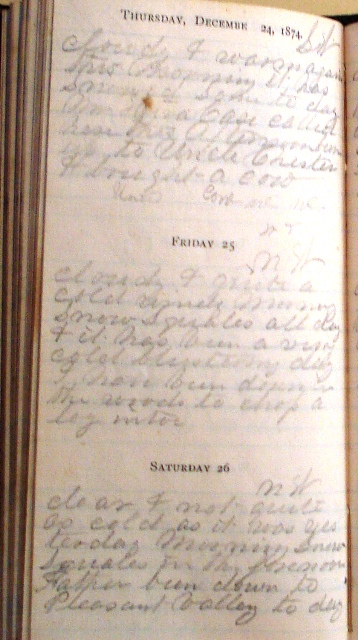 Thursday, Decembe 24, 1874.
S W
cloudy & warm again
this Morning it has
snowed some to day
Case called
here this Afternoon
up to Uncle Chester
& bought a cow
Friday 25
N W
cloudy & quite a
cold windy Morning
snow squales all day
& it has been a very
cold blustering day
I have been down in
the woods to chop a
log
Saturday 26
N W
clear & not quite
as cold as it was yes
terday Morning snow
squales in the forenoon
Father been down to
Pleasant Valley to day